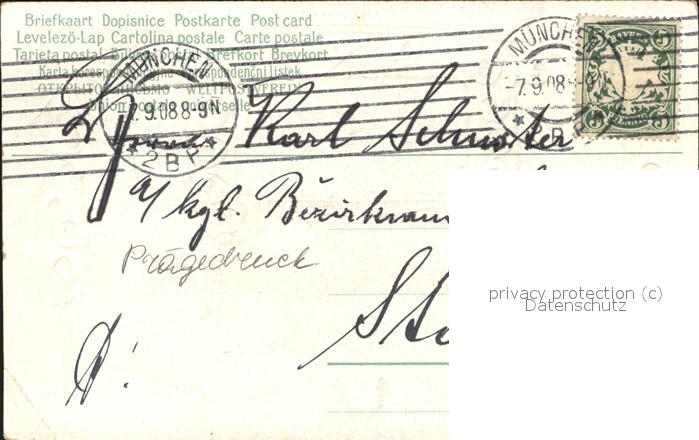 Briefkaart Dopisnice Postkarte Post card
Levelező-Lap Cartolina postale Carte postale
Tarjeta postal Brefkort Brevkort
Karta korespondencyjna Korespondenční listek
WELTPOSTVEREIN
Union postale universelle
MÜNCHEN
7.9.08 8-9N
* 2 B P *
MÜNCHEN
-7.9.08
Karl Schuster
a/ kgl. Bezirksam
Prägedruck
St
privacy protection (c)
Datenschutz